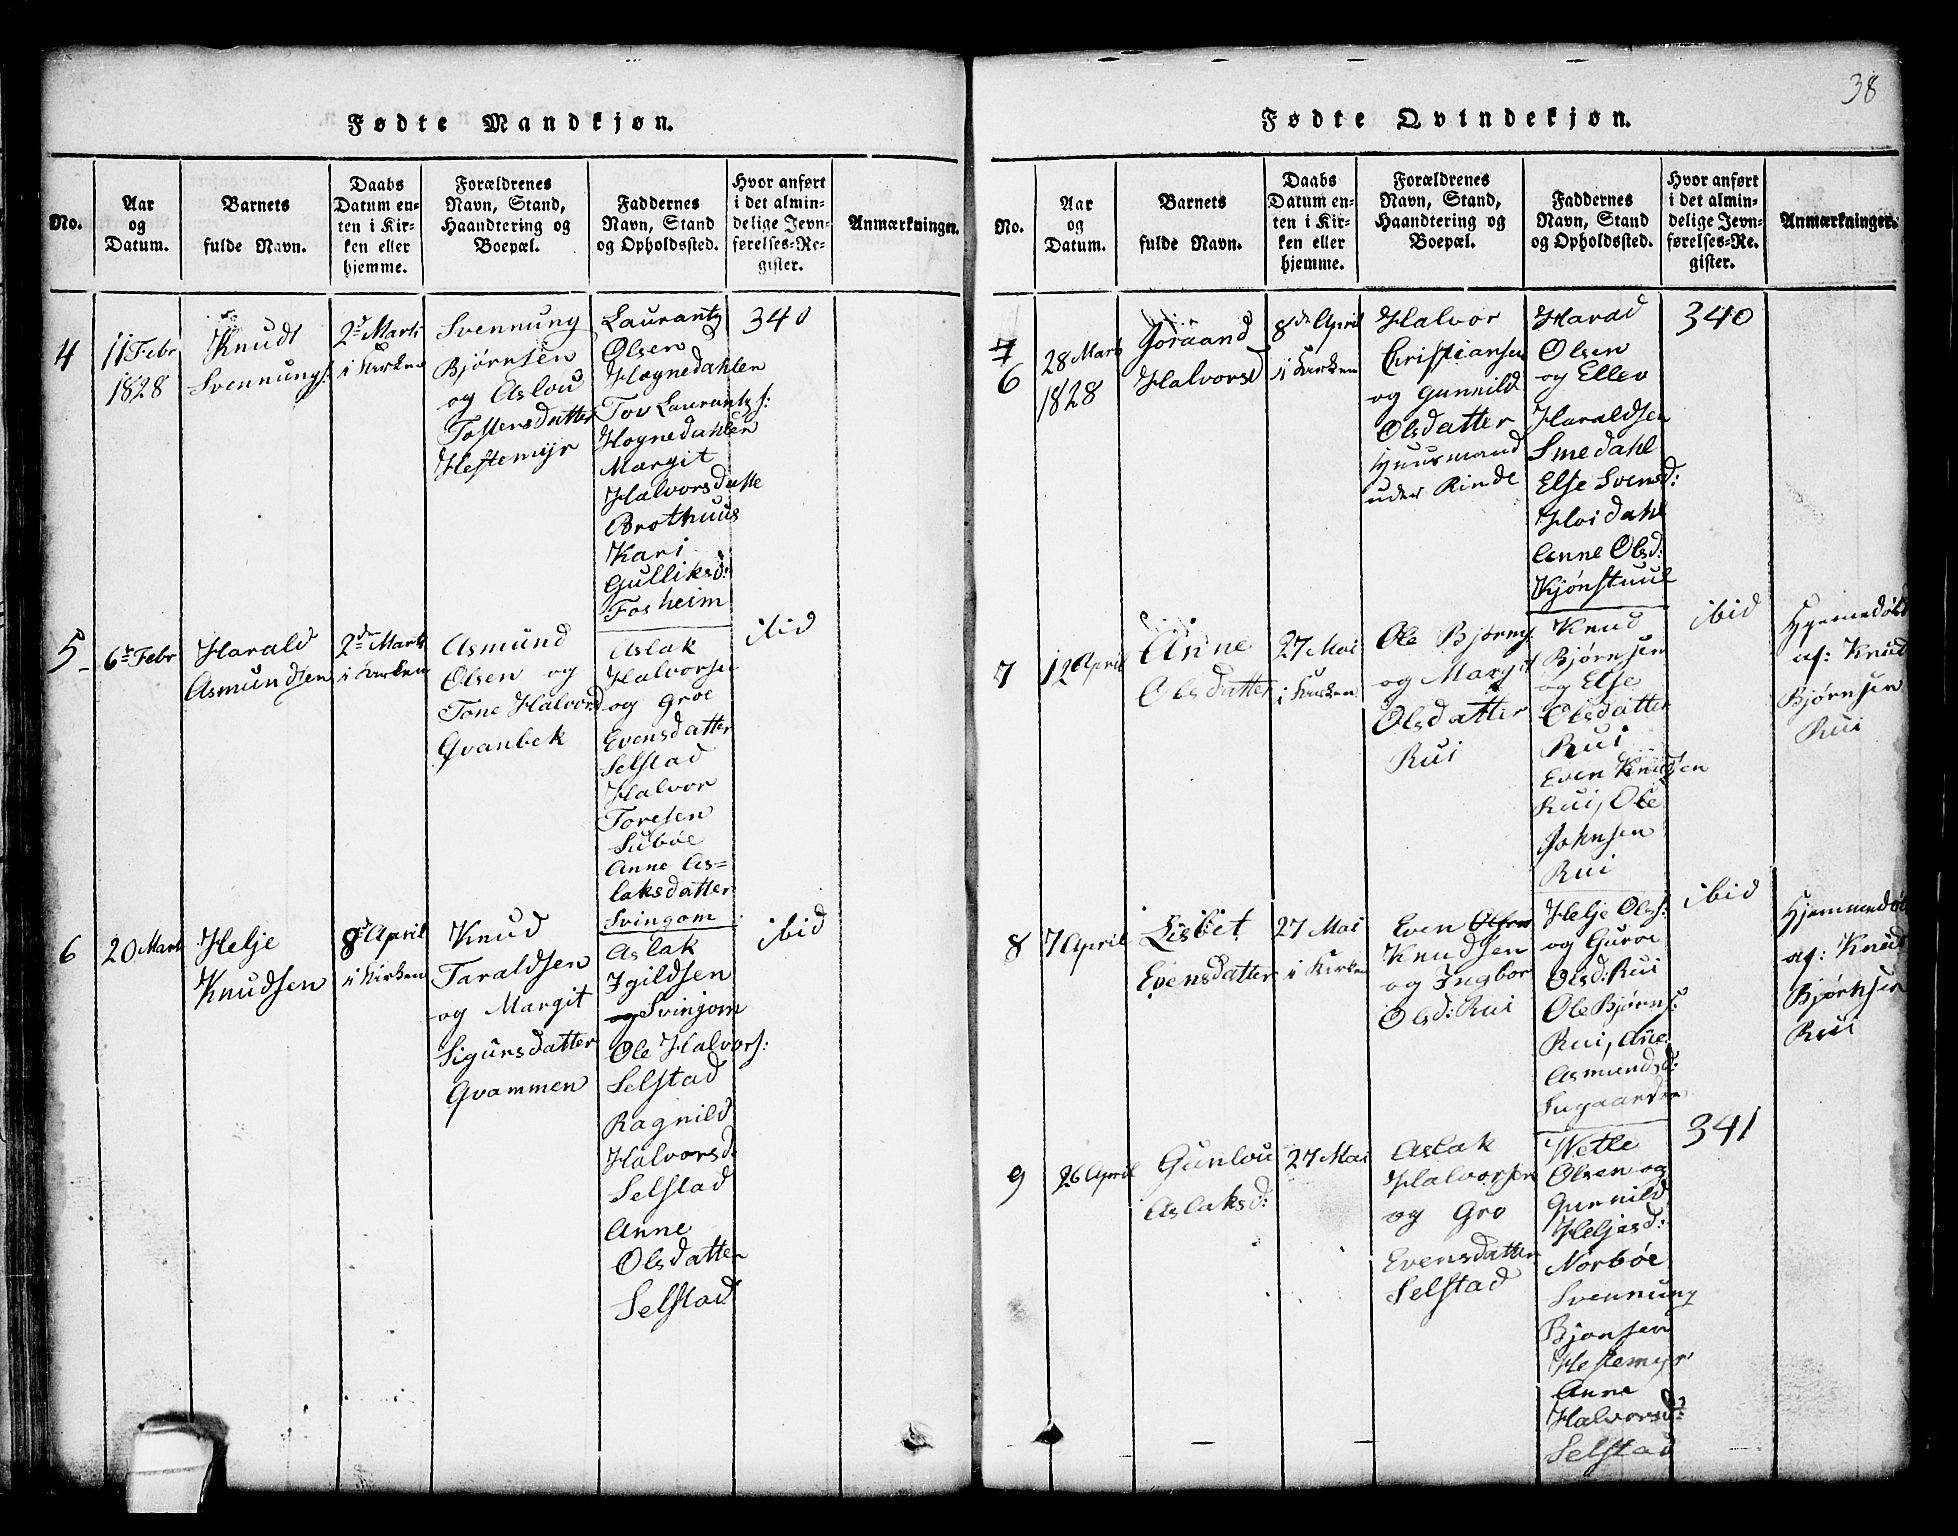 38
Fødte Mandkjøn.
No.
Aar
og
Datum.
Barnets
fulde Navn.
Daabs
Datum en-
ten i Kir-
ken eller
hjemme.
Forældrenes
Navn, Stand,
Haandtering og
Boepæl.
Faddernes
Navn, Stand
og Opholdssted.
Hvor anført
i det almin-
delige Jevn-
førelses-Re-
gister.
Anmærkninger.
4
11 Febr
1828
Knudt
Svennungs:
2d Marts
i Kirken
Svennung
Bjørnsen
og Aslou
Tostensdatter
Hestemyr
Laurantz
Olsen
Høgnedahlen
Tov Laurantzs:
Hognedahlen
Margit
Halvorsdatte
Brothuus
Kari
Gulliksd:
Fosheim
340
5
6t Febr
Harald
Asmundsen
2de Marts
i Kirken
Asmund
Olsen og
Tone Halvorsd
Qvanbek
Aslak
Halvorsen
og Groe
Evensdatter
Selstad
Halvor
Toresen
Subøe
Anne As=
laksdatter
Svingom
ibid
6
20 Marts
Helje
Knudsen
8d April
i Kirken
Knud
Taraldsen
og Margit
Sigursdatter
Qvammen
Aslak
Igildsen
og Svingom
Ole Halvors:
Selstad
Ragnild
Halvorsd:
Selstad
Anne
Olsdatter
Selstad
ibid
Fødte Qvindekjøn.
No.
Aar
og
Datum.
Barnets
fulde Navn.
Daabs
Datum en-
ten i Kir-
ken eller
hjemme.
Forældrenes
Navn, Stand,
Haandtering og
Boepæl.
Faddernes
Navn, Stand
og Opholdssted.
Hvor anført
i det almin-
delige Jevn-
førelses-Re-
gister.
Anmærkninger.
6
28 Marts
1828
Joraand
Halvorsd
8de April
i Kirken
Halvor
Christiansen
og Gunnild
Olsdatter
Huusmand
under Rinde
Harad
Olsen
og Ellev
Haraldsen
Smedahl
Else Svensd:
Hoidahl
Anne Olsd:
Kjønstuul
340
7
12 April
Anne
Olsdatter
27 Mai
i Kirken
Ole Bjørns
og Margit
Olsdatter
Rui
Knud
Bjørnsen
og Else
Olsdatter
Rui
Even Knudsen
Rui, Ole
Johnsen
Rui
ibid
Hjemedøbt
af: Knud
Bjørnsen
Rui
8
7 April
Lisbet
Evensdatter
27 Mai
i Kirken
Even Olsen
Knudsen
og Ingbor
Olsd: Rui
Helje Olss:
og Guroe
Olsd: Rui
Ole Bjørns:
Rui, Ane
Asmundsd:
ibid
Hjemmedøb
af: Knud
Bjørnsen
Rui
9
26 April
Gunlou
Aslaksd:
27 Mai
Aslak
Halvorsen
og Gro
Evensdatter
Selstad
Wetle
Olsen og
Gunnild
Heljesd:
Norbøe
Svennung
Bjonsen
Hestemyr
Anne
Halvorsd:
Selstad
341